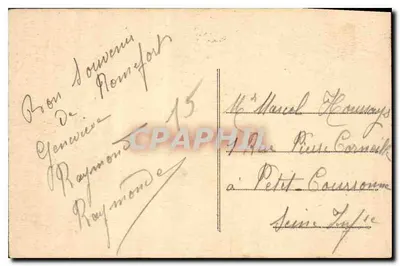 Bon Souvenir
De Romefort
Geneviève
Raymond 15
Raymonde
CPAPHIL
Mr Marcel Houssays
1 Rue Pierre Corneille
à Petit-Couronne
Seine Infre